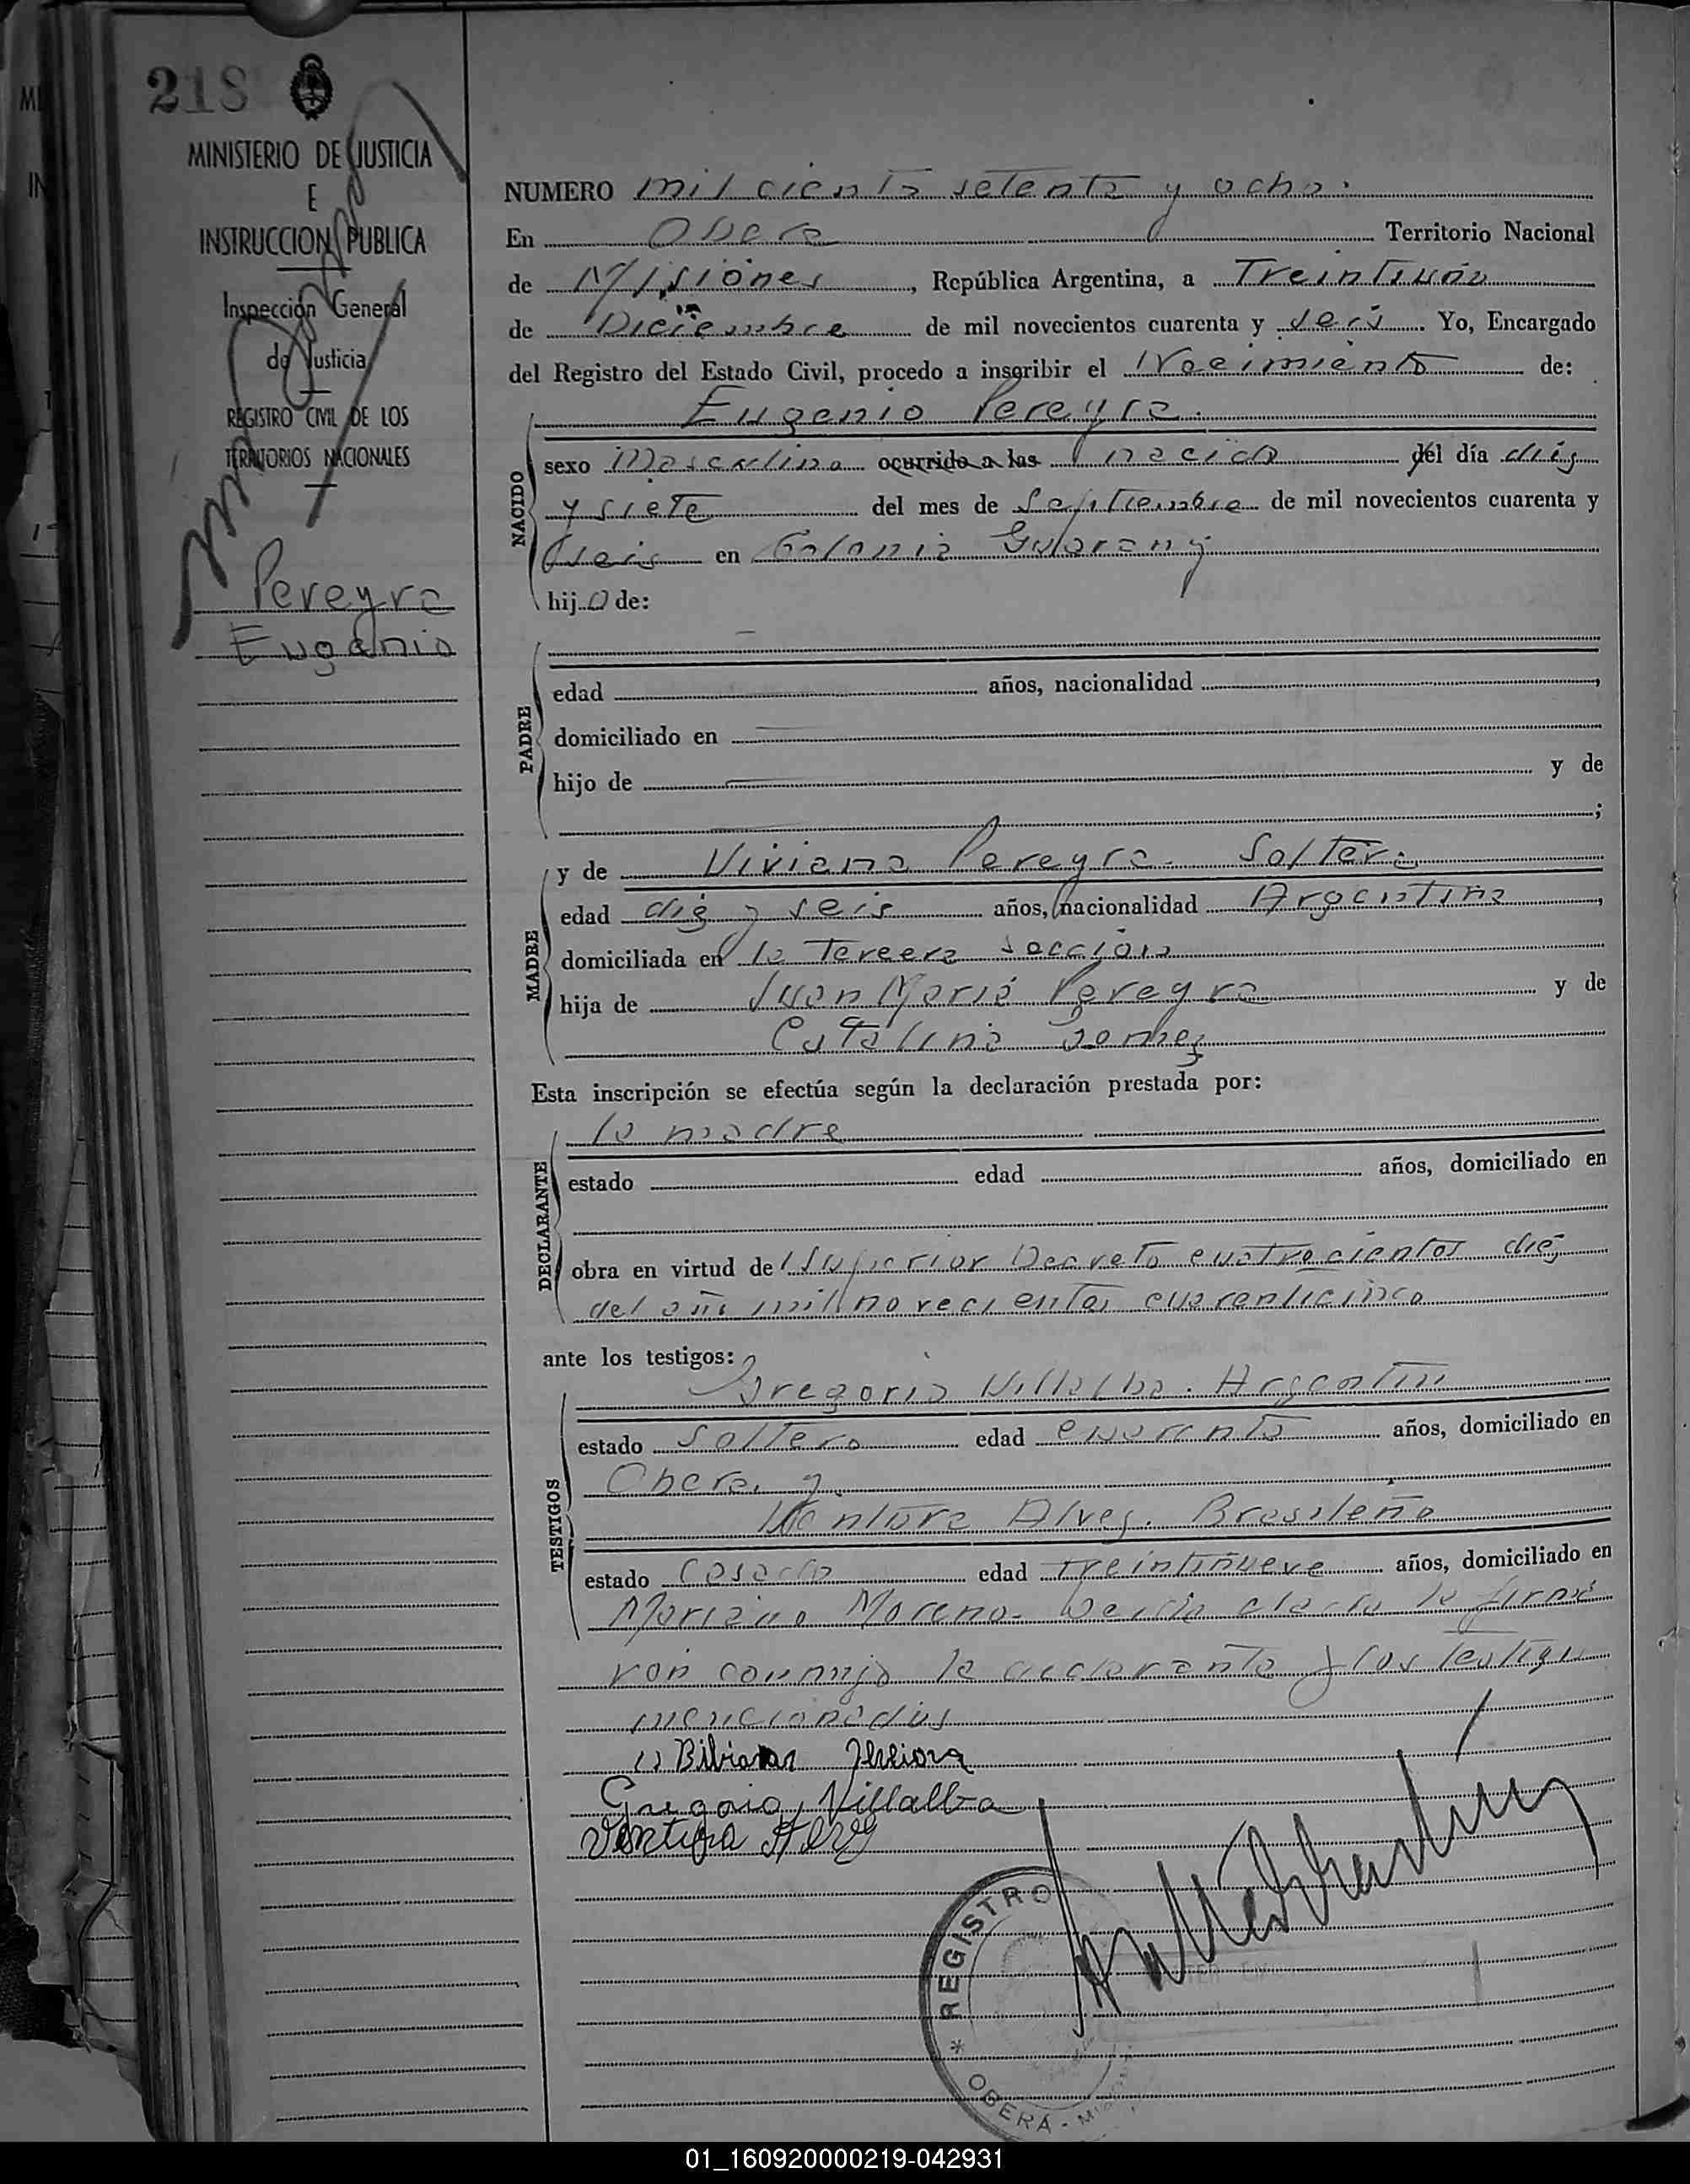 218
MINISTERIO DE JUSTICIA
E
INSTRUCCION PUBLICA
Inspección General
de Justicia
REGISTRO CIVIL DE LOS
TERRITORIOS NACIONALES
Pereyra
Eugenio
NUMERO mil ciento setenta y ocho.
En Obera Territorio Nacional
de Misiones, República Argentina, a Treintiuno
de Diciembre de mil novecientos cuarenta y seis. Yo, Encargado
del Registro del Estado Civil, procedo a inscribir el Nacimiento de:
Eugenio Pereyra.
NACIDO
sexo Masculino ocurrido a las nacido del día diez
y siete del mes de Septiembre de mil novecientos cuarenta y
seis en Colonia Guarany
hijo de:
PADRE
edad años, nacionalidad ,
domiciliado en
hijo de y de
;
MADRE
y de Viviana Pereyra. Soltera
edad diez y seis años, nacionalidad Argentina,
domiciliada en la Tercera Sección
hija de Juan María Pereyra y de
Catalina Gomez
Esta inscripción se efectúa según la declaración prestada por:
DECLARANTE
la madre
estado edad años, domiciliado en
obra en virtud de Superior Decreto cuatrocientos diez
del año mil novecientos cuarenticinco
ante los testigos:
TESTIGOS
Gregorio Villalba. Argentin
estado Soltero edad cuarenta años, domiciliado en
Obera. y
Ventura Alvez. Brasileño
estado Casado edad treintinueve años, domiciliado en
Mariano Moreno. la firma
ron conmigo la declarante y los testigos
mencionados
Bibiana
Gregorio Villalba
Ventura Alvez
REGISTRO
* OBERÁ -
01_160920000219-042931